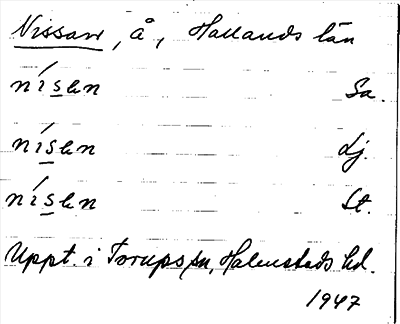 Nissan, å, Hallands län
nís̲ən Sa.
nís̲ən Lj.
nís̲ən St.
Uppt. i Torups sn, Halmstads hd.
1947